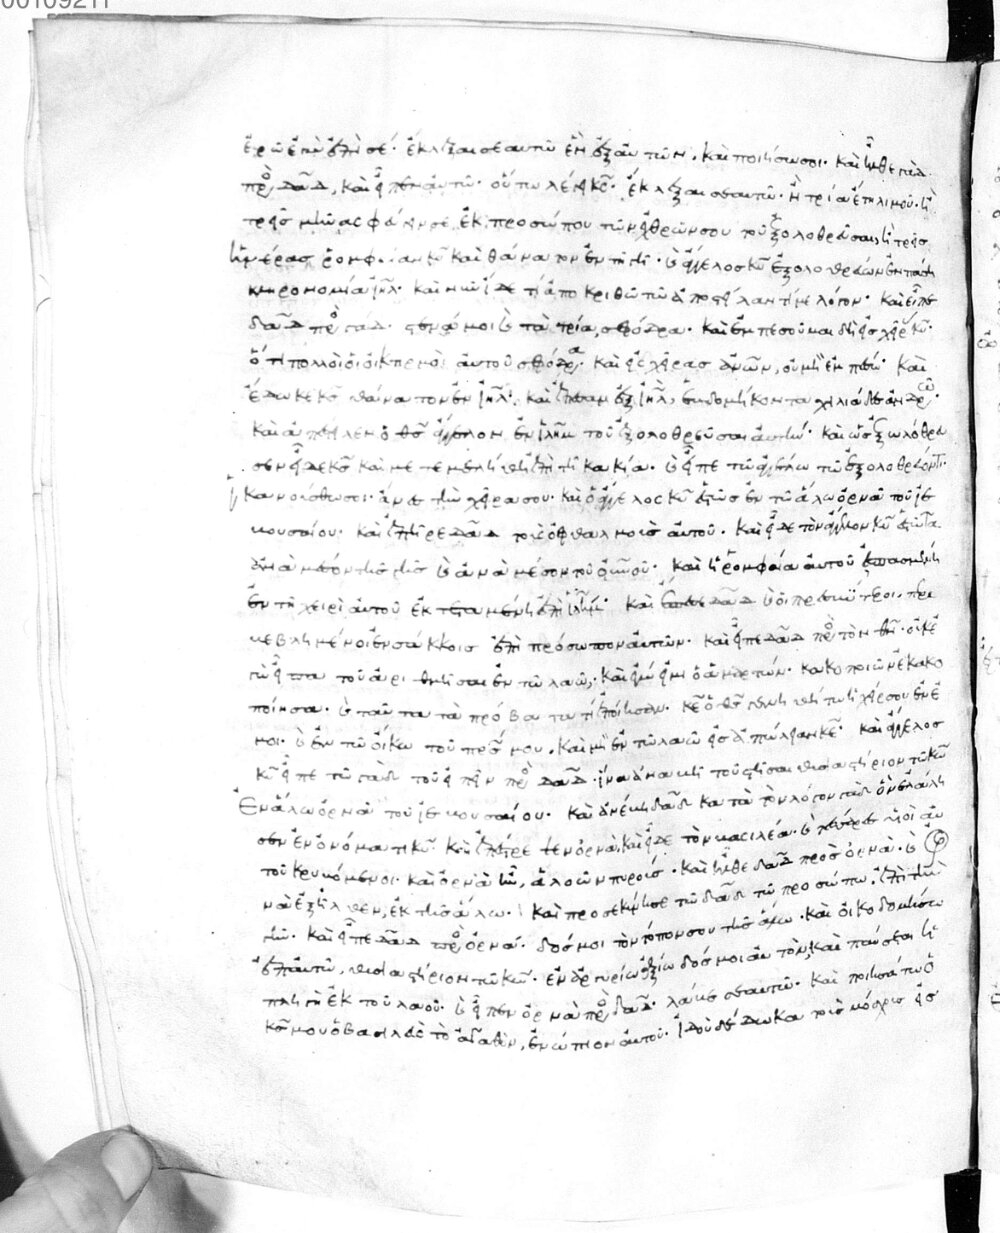 00109211
ἐρῶ ἐπὶ σέ· ἔκλεξαι σεαυτῶ ἓν ἐξ αὐτῶν, καὶ ποιήσω σοι· καὶ ἦλθε γὰδ
πρὸς δαδ, καὶ εἶπεν αὐτῶ· οὕτω λέγει κς· ἔκλεξαι σεαυτῶ· ἢ τρία ἔτη λιμοῦ· ἢ
τρεῖς μῆνας φεύγειν σε ἐκ προσώπου τῶν ἐχθρῶν σου τοῦ ἐξολοθρεῦσαι, ἢ τρεῖς
ἡμέρας ῥομφαίαν κυ καὶ θάνατον ἐν τῆ γῆ· καὶ ἄγγελος κυ ἐξολοθρεύων ἐν πάση
κληρονομία ιηλ· καὶ νῦν ἴδε τί ἀποκριθῶ τῶ ἀποστείλαντί με λόγον· καὶ εἶπε
δαδ πρὸς γάδ· στενά μοι καὶ τὰ τρία, σφόδρα· καὶ ἐμπεσοῦμαι δὴ εἰς χεῖρας κυ·
ὅτι πολλοὶ οἱ οἰκτιρμοὶ αὐτοῦ σφόδρα· καὶ εἰς χεῖρας ἀνων, οὐ μὴ ἐμπέσω· καὶ
ἔδωκε κς θάνατον ἐν ιηλ· καὶ ἔπεσαν ἐξ ιηλ, ἑβδομήκοντα χιλιάδες ἀνδρῶν·
καὶ ἀπέστειλεν ὁ θς ἄγγελον ἐν ιλημ τοῦ ἐξολοθρεῦσαι αὐτήν· καὶ ὡς ἐξωλόθρευ
σεν εἶδε κς καὶ μετεμελήθη ἐπὶ τῆ κακία· καὶ εἶπε τῶ ἀγγέλω τῶ ἐξολοθρεύοντι·
ἱκανούσθω σοι· ἄνες τὴν χεῖρα σου· καὶ ὁ ἄγγελος κυ ἑστὼς ἐν τῶ ἅλω ὀρνὰ τοῦ ἰε
βουσαίου· καὶ ἐπῆρε δαδ τοὺς ὀφθαλμοὺς αὐτοῦ· καὶ εἶδε τὸν ἄγγελον κυ ἑστῶτα
ἀνὰ μέσον τῆς γῆς καὶ ἀνὰ μέσον τοῦ οὐνοῦ· καὶ ἡ ῥομφαία αὐτοῦ ἐσπασμένη
ἐν τῆ χειρὶ αὐτοῦ ἐκτεταμένη ἐπὶ ιλημ· καὶ ἔπεσε δαδ καὶ οἱ πρεσβύτεροι περι
βεβλημένοι ἐν σάκκοις ἐπὶ πρόσωπον αὐτῶν· καὶ εἶπε δαδ πρὸς τὸν θν· οὐκ ἐ
γὼ εἶπα τοῦ ἀριθμῆσαι ἐν τῶ λαῶ, καὶ ἐγώ εἰμι ὁ ἁμαρτών· κακοποιῶν ἐκακο
ποίησα· καὶ ταῦτα τὰ πρόβατα τί ἐποίησαν· κε ὁ θς γενηθήτω ἡ χείρ σου ἐν ἐ
μοι· καὶ ἐν τῶ οἴκω τοῦ πρς μου, καὶ μὴ ἐν τῶ λαῶ εἰς ἀπώλειαν κε· καὶ ἄγγελος
κυ εἶπε τῶ γὰδ τοῦ εἰπεῖν πρὸς δαδ· ἵνα ἀναβῆ τοῦ στῆσαι θυσιαστήριον τῶ κω
ἐν ἅλω ὀρνὰ τοῦ ἰεβουσαίου· καὶ ἀνέβη δαδ κατὰ τὸν λόγον γὰδ ὃν ἐλάλη
σεν ἐν ὀνόματι κυ· καὶ ἐπέστρεψεν ὀρνὰ, καὶ εἶδε τὸν βασιλέα· καὶ τέσσαρες υἱοὶ αὐ
τοῦ κρυβόμενοι· καὶ ὀρνὰ ἦν, ἀλοῶν πυρούς· καὶ ἦλθε δαδ πρὸς ὀρνὰ· καὶ ὀρ
νὰ ἐξῆλθεν, ἐκ τῆς ἅλω· καὶ προσεκύνησε τῶ δαδ τῶ προσώπω ἐπὶ τὴν
γῆν· καὶ εἶπε δαδ πρὸς ὀρνά· δός μοι τὸν τόπον σου τῆς ἅλω· καὶ οἰκοδομήσω
ἐπ αὐτῶ, θυσιαστήριον τῶ κω· ἐν ἀργυρίω ἀξίω δός μοι αὐτόν, καὶ παύσεται ἡ
πληγὴ ἐκ τοῦ λαοῦ· καὶ εἶπεν ὀρνὰ πρὸς δαδ· λάβε σεαυτῶ· καὶ ποιησάτω ὁ
κς μου ὁ βασιλεὺς τὸ ἀγαθὸν, ἐνώπιον αὐτοῦ· ἰδοὺ δέδωκα τοὺς μόσχους εἰς